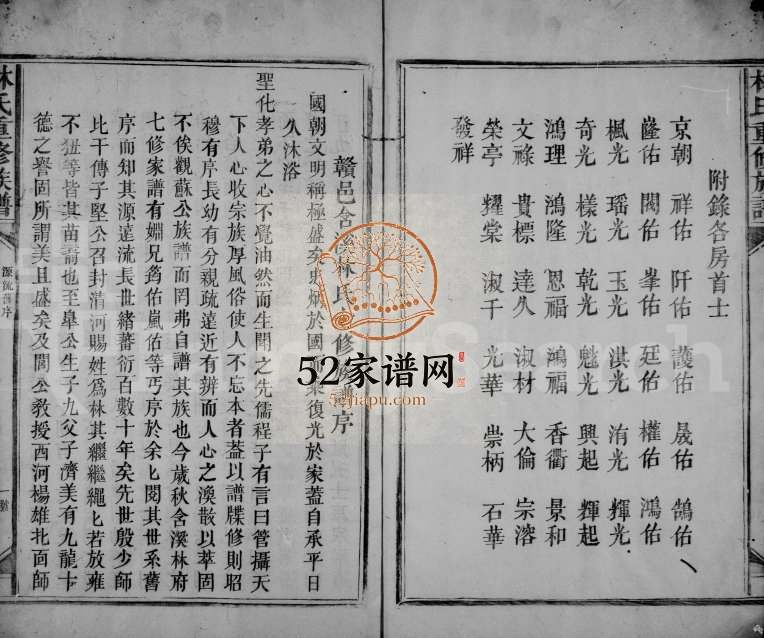 林氏重修族譜
附錄各房首士
京朝 祥佑 阡佑 護佑 晟佑 鵠佑
隆佑 閎佑 峯佑 廷佑 權佑 鴻佑
楓光 瑤光 玉光 淇光 洧光 輝光
奇光 樣光 乾光 魁光 興起 輝起
鴻理 鴻隆 恩福 鴻福 香衢 景和
文祿 貴標 達久 淑材 大倫 宗溶
榮亭 耀棠 淑千 光華 崇柄 石華
發祥
贛邑含溪林氏 修族譜序
國朝文明稱極盛矣 於國而 復光於家蓋自承平日
久沐浴
聖化孝弟之心不覺油然而生聞之先儒程子有言曰管攝天
下人心收宗族厚風俗使人不忘本者蓋以譜牒修則昭
穆有序長幼有分親疏遠近有辨而人心之渙散以萃固
不俟觀蘇公族譜而罔弗自譜其族也今歲秋含溪林府
七修家譜有姻兄筠佑嵐佑等丐序於余乚閱其世系舊
序而知其源遠流長世緒蕃衍百數十年矣先世殷少師
比干傳子堅公召封清河賜姓爲林其繼繼繩乚若放雍
不狃等皆其苗裔也至臯公生子九父子濟美有九龍十
德之譽固所謂美且盛矣及閭公敎授西河楊雄北面師
林氏重修族譜
源流舊序
一
52家谱网
52jiapu.com